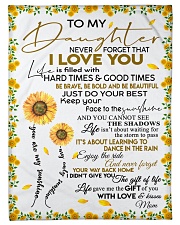 TO MY
Daughter
NEVER FORGET THAT
I LOVE YOU
Life is filled with
HARD TIMES & GOOD TIMES
BE BRAVE, BE BOLD AND BE BEAUTIFUL
JUST DO YOUR BEST
Keep your
Face to the sunshine
AND YOU CANNOT SEE
THE SHADOWS
Life isn't about waiting
for the storm to pass
IT'S ABOUT LEARNING TO
DANCE IN THE RAIN
Enjoy the ride
And never forget
YOUR WAY BACK HOME
I DIDN'T GIVE YOU The gift of life
Life gave me the GIFT of you
WITH LOVE & kisses
Mom
you are my sunshine